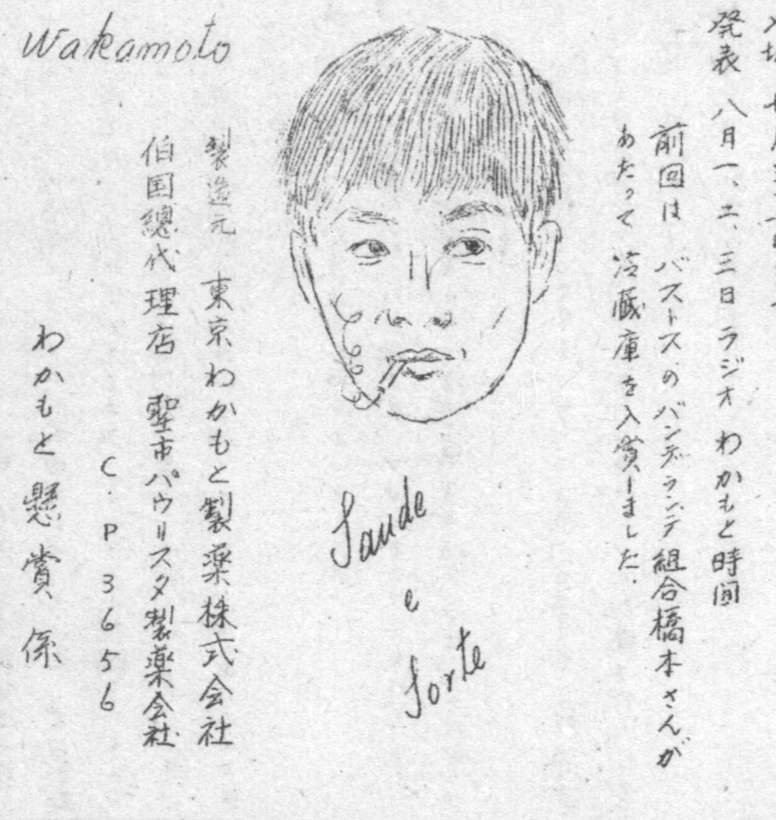 発表 八月一、二、三日 ラジオ わかもと時間
前回は バストスの バンデランテ組合橋本さんが
あたって 冷蔵庫を入賞しました.
Saude
e
Sorte
Wakamoto
製造元 東京わかもと製薬株式会社
伯国總代理店 聖市パウリスタ製薬会社
C.P 3656
わかもと懸賞係